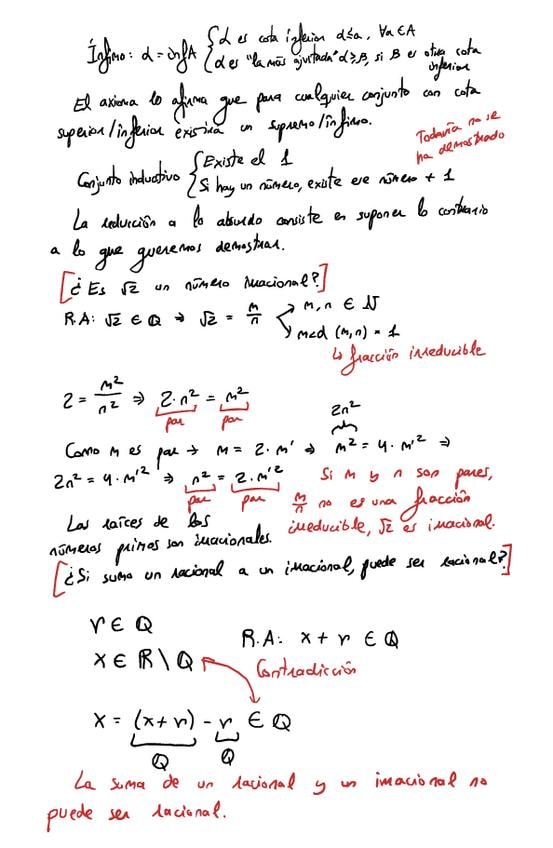 Ínfimo: α = inf A { α es cota inferior α ≤ a, ∀a ∈ A
α es "la más ajustada" α ≥ β, si β es otra cota inferior
El axioma lo afirma que para cualquier conjunto con cota
superior/inferior existirá un supremo/ínfimo.
Todavía no se
ha demostrado
Conjunto inductivo { Existe el 1
Si hay un número, existe ese número + 1
La reducción a lo absurdo consiste en suponer lo contrario
a lo que queremos demostrar.
[¿Es √2 un número irracional?]
R.A: √2 ∈ Q → √2 = m/n → m, n ∈ N
→ mcd (m,n) = 1
↳ fracción irreducible
2 = m²/n² ⇒ 2·n² = m²
par par
2n²
Como m es par → m = 2·m' ⇒ m² = 4·m'² ⇒
2n² = 4·m'² ⇒ n² = 2·m'²
par par
Si m y n son pares,
m/n no es una fracción
irreducible, √2 es irracional.
Las raíces de los
números primos son irracionales.
[¿Si sumo un racional a un irracional, puede ser racional?]
r ∈ Q
R.A: x + r ∈ Q
x ∈ R \ Q
Contradicción
x = (x+r) - r ∈ Q
Q Q
La suma de un racional y un irracional no
puede ser racional.